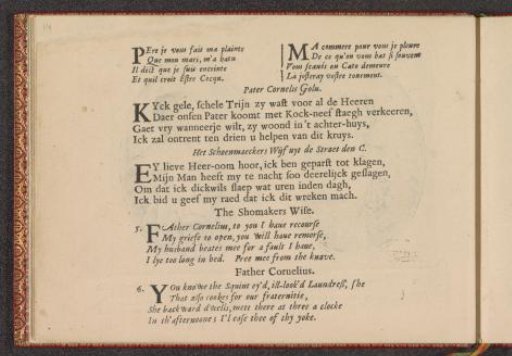 PEre je vous fais ma plainte
Que mon mari, m'a batu
Il dict que je suis enceinte
Et quil croit estre Cocqu.
MA commere pour vous je pleure
De ce qu'on vous bat si souvent
Vous scaués ou Cato demeure
La jesteray vostre tourment.
Pater Cornelis Golu.
KYck gele, schele Trijn zy wast voor al de Heeren
Daer onsen Pater koomt met Kock-neef staegh verkeeren,
Gaet vry wanneerje wilt, zy woond in 't achter-huys,
Ick zal ontrent ten drien u helpen van dit kruys.
Het Schoenmaeckers Wijf uyt de Straet den C.
EY lieve Heer-oom hoor, ick ben geparst tot klagen,
Mijn Man heeft my te nacht soo deerelijck geslagen,
Om dat ick dickwils slaep wat uren inden dagh,
Ick bid u geef my raed dat ick dit wreken mach.
The Shomakers Wife.
5. FAther Cornelius, to you I haue recourse
My griefe to open, you will haue remorse,
My husband beates mee for a fault I haue,
I lye too long in bed. Free mee from the knave.
Father Cornelius.
6. YOu knowe the Squint ey'd, ill-look'd Laundress, she
That also cookes for our fraternitie,
She backward dwells, meet there at three a clocke
In th'afternoones I'l ease thee of thy yoke.